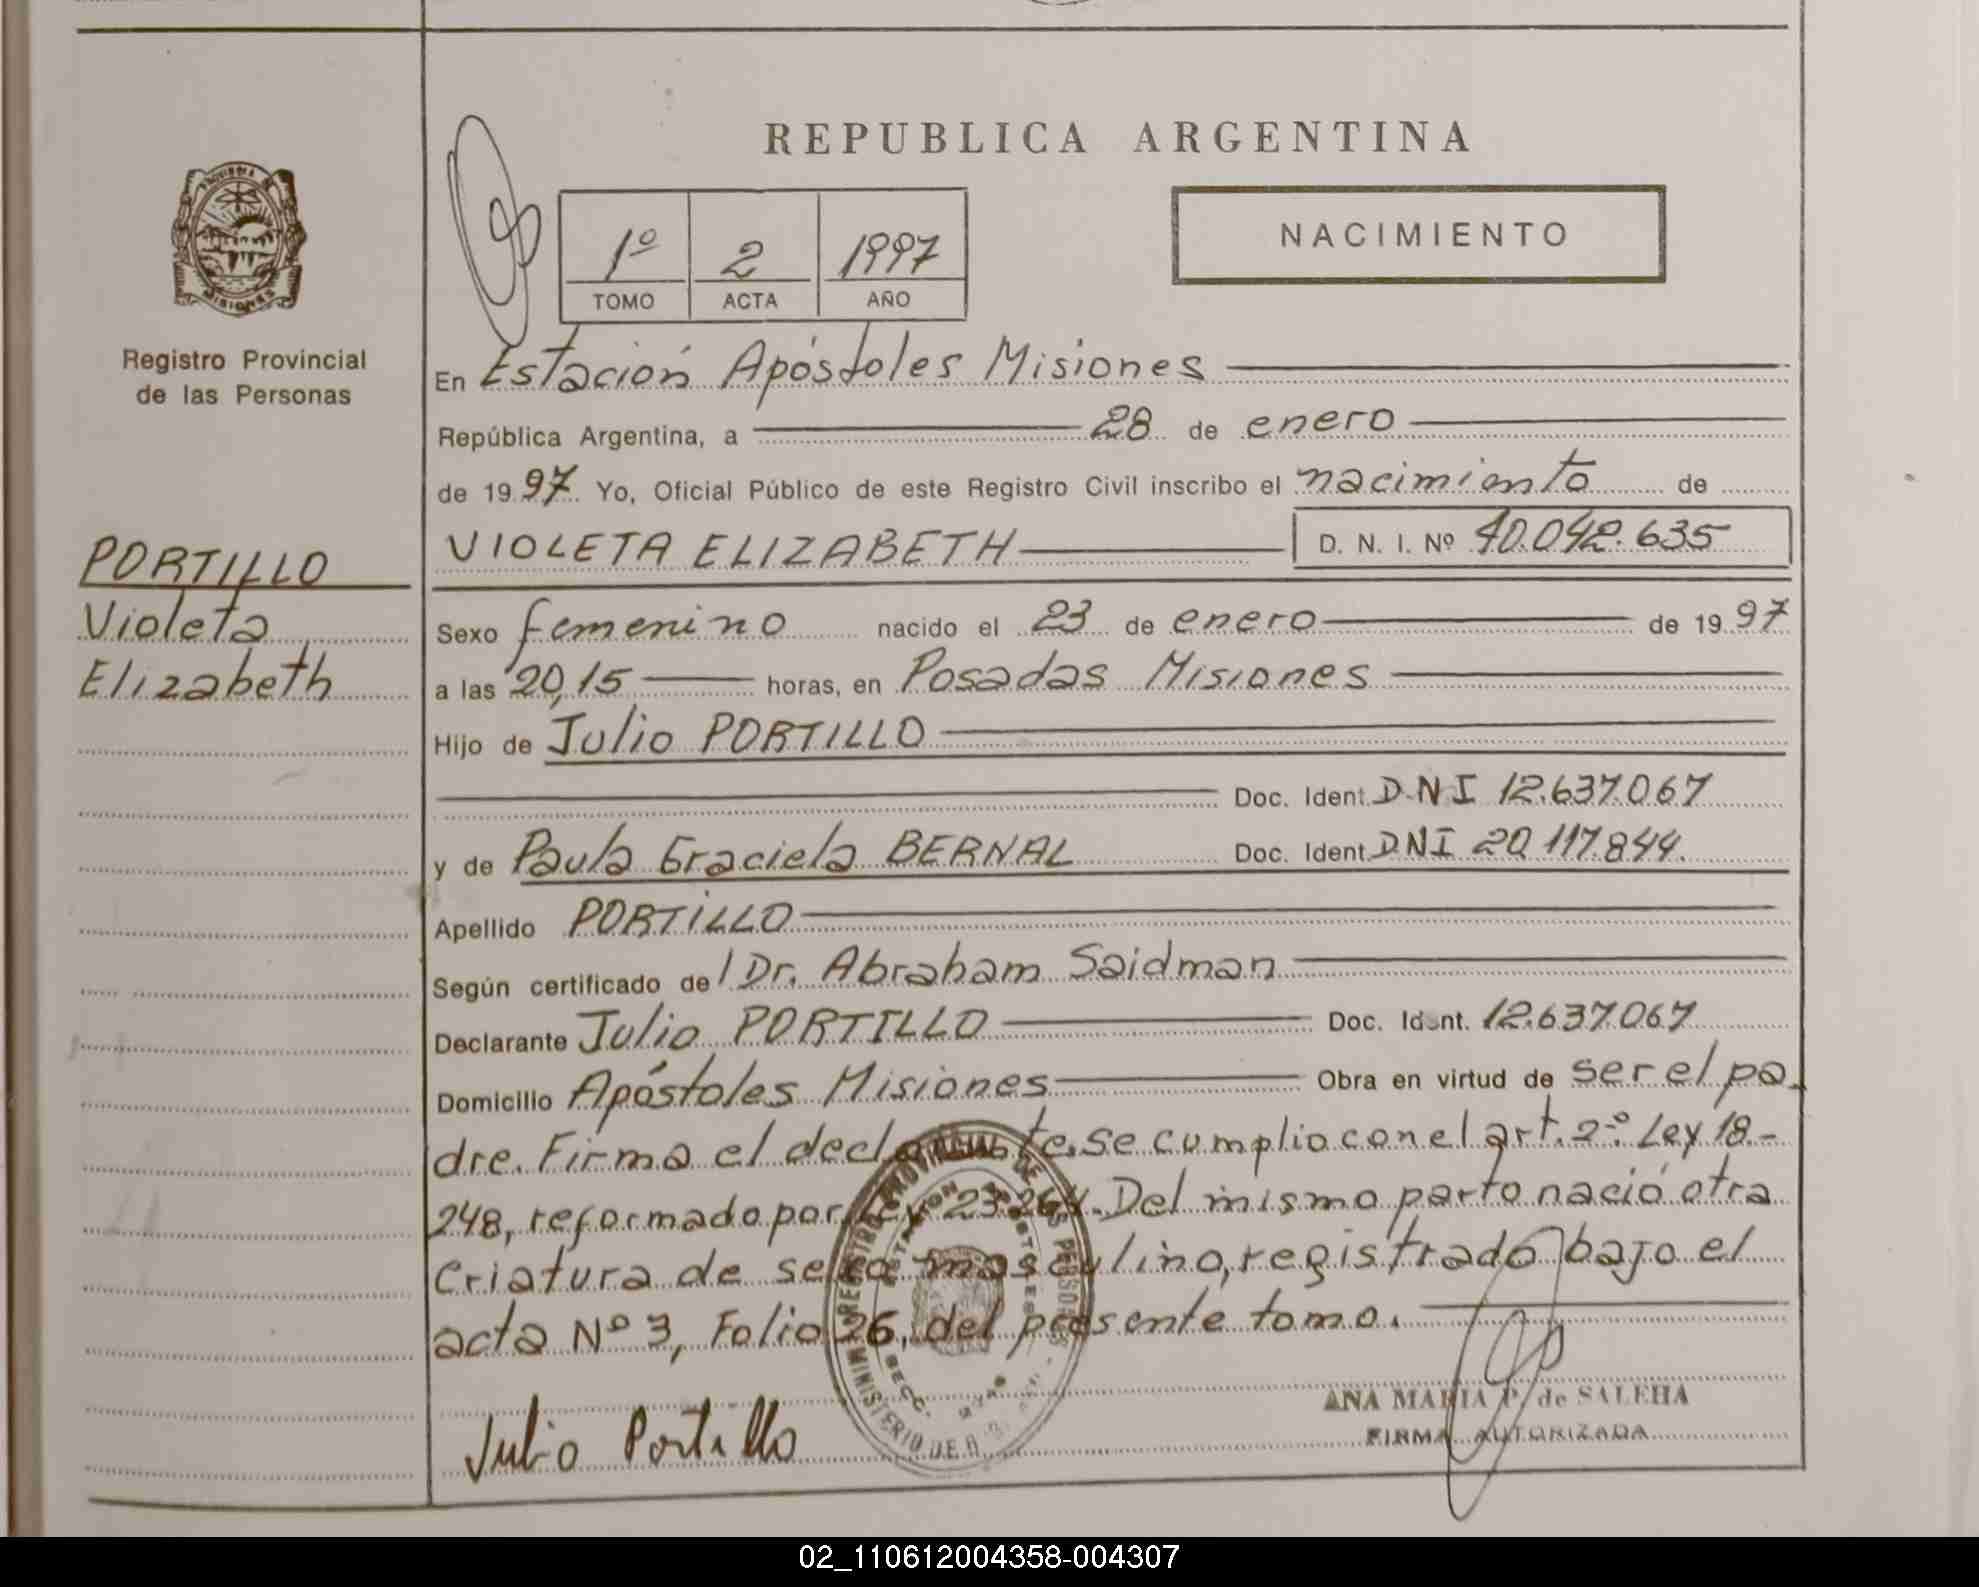 REPUBLICA ARGENTINA
NACIMIENTO
1º 2 1997
TOMO ACTA AÑO
PROVINCIA
MISIONES
Registro Provincial
de las Personas
PORTILLO
Violeta
Elizabeth
En Estación Apóstoles Misiones
República Argentina, a 28 de enero
de 19 97 Yo, Oficial Público de este Registro Civil inscribo el nacimiento de
VIOLETA ELIZABETH D. N. I. Nº 40.042.635
Sexo femenino nacido el 23 de enero de 19 97
a las 20,15 horas, en Posadas Misiones
Hijo de Julio PORTILLO
Doc. Ident. DNI 12.637.067
y de Paula Graciela BERNAL Doc. Ident. DNI 20.117.844.
Apellido PORTILLO
Según certificado de l Dr. Abraham Saidman
Declarante Julio PORTILLO Doc. Ident. 12.637.067
Domicilio Apóstoles Misiones Obra en virtud de ser el pa-
dre. Firma el declarante. Se cumplio con el art. 2º Ley 18-
248, reformado por Ley 23.264. Del mismo parto nació otra
criatura de sexo masculino, registrado bajo el
acta Nº 3, Folio 26, del presente tomo.
REGISTRO PROVINCIAL DE LAS PERSONAS
ESTACION APOSTOLES
SECC.
MINISTERIO DE
Julio Portillo
ANA MARIA P. de SALEHA
FIRMA AUTORIZADA
02_110612004358-004307